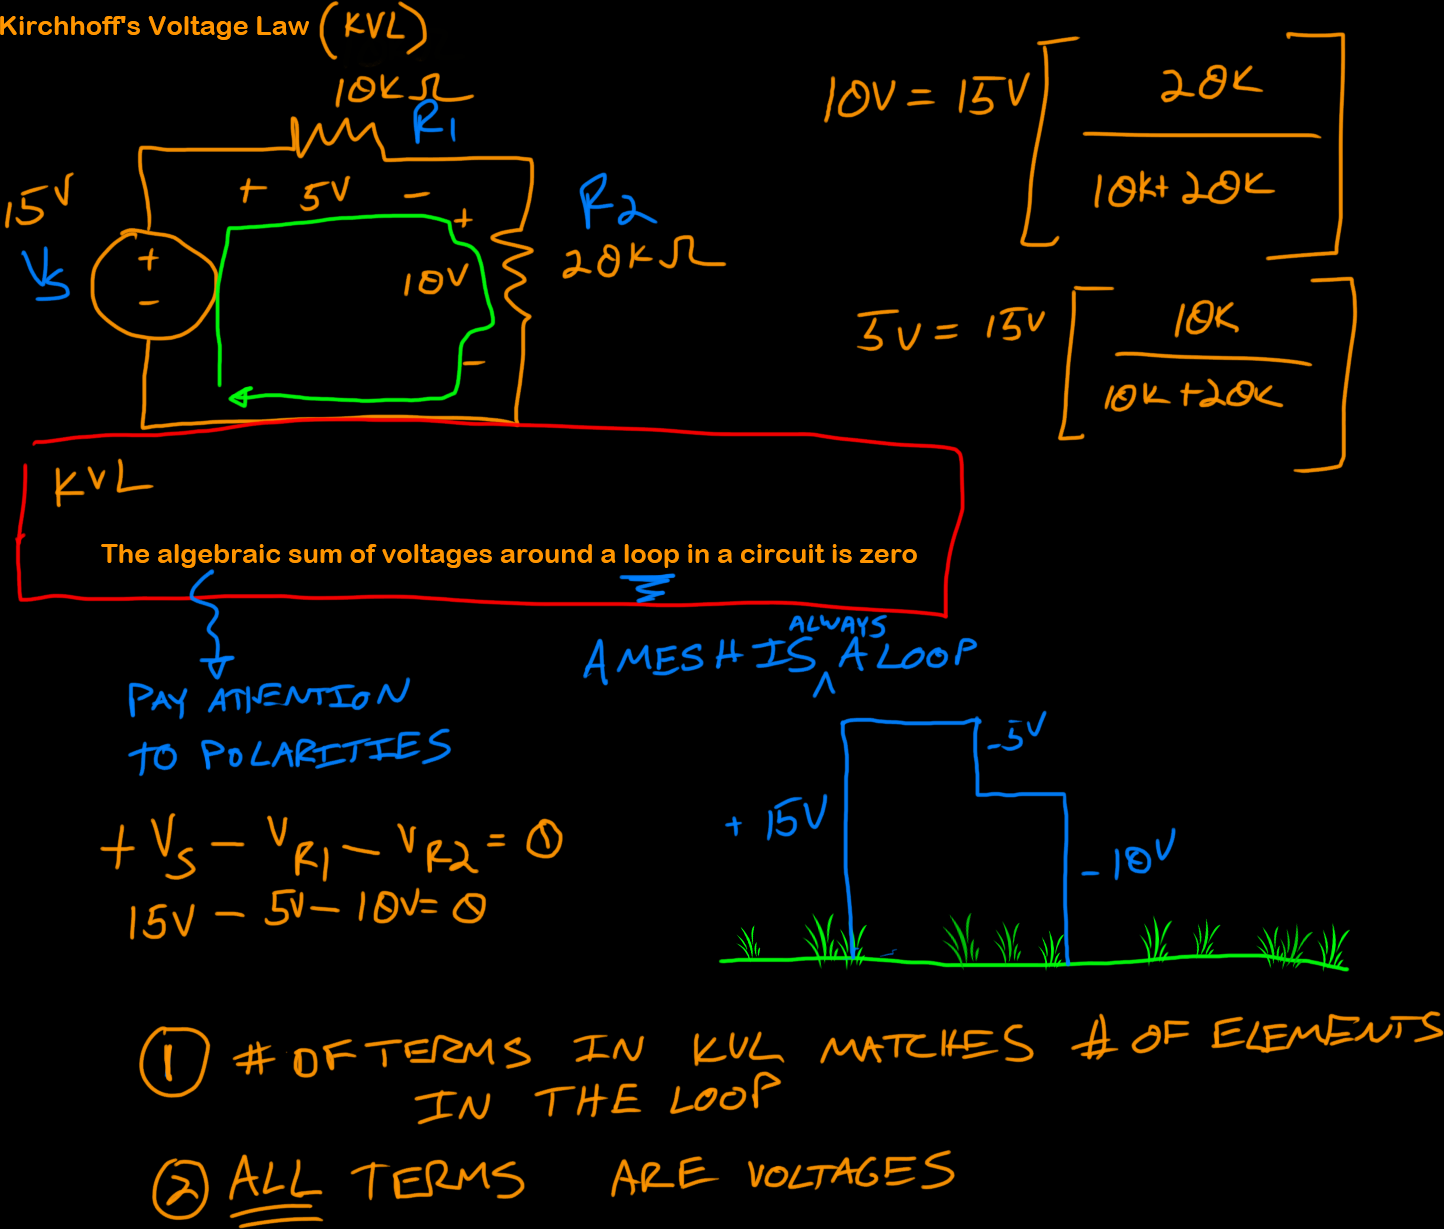 Kirchhoff's Voltage Law (KVL)
10KΩ
R1
15V
Vs
+ 5V -
+
-
+
10V
-
R2
20KΩ
10V = 15V [ 20K / 10K + 20K ]
5V = 15V [ 10K / 10K + 20K ]
KVL
The algebraic sum of voltages around a loop in a circuit is zero
PAY ATTENTION
TO POLARITIES
ALWAYS
A MESH IS ^ A LOOP
+ VS - VR1 - VR2 = 0
15V - 5V - 10V = 0
+ 15V
-5V
-10V
① # OF TERMS IN KVL MATCHES # OF ELEMENTS
IN THE LOOP
② ALL TERMS ARE VOLTAGES